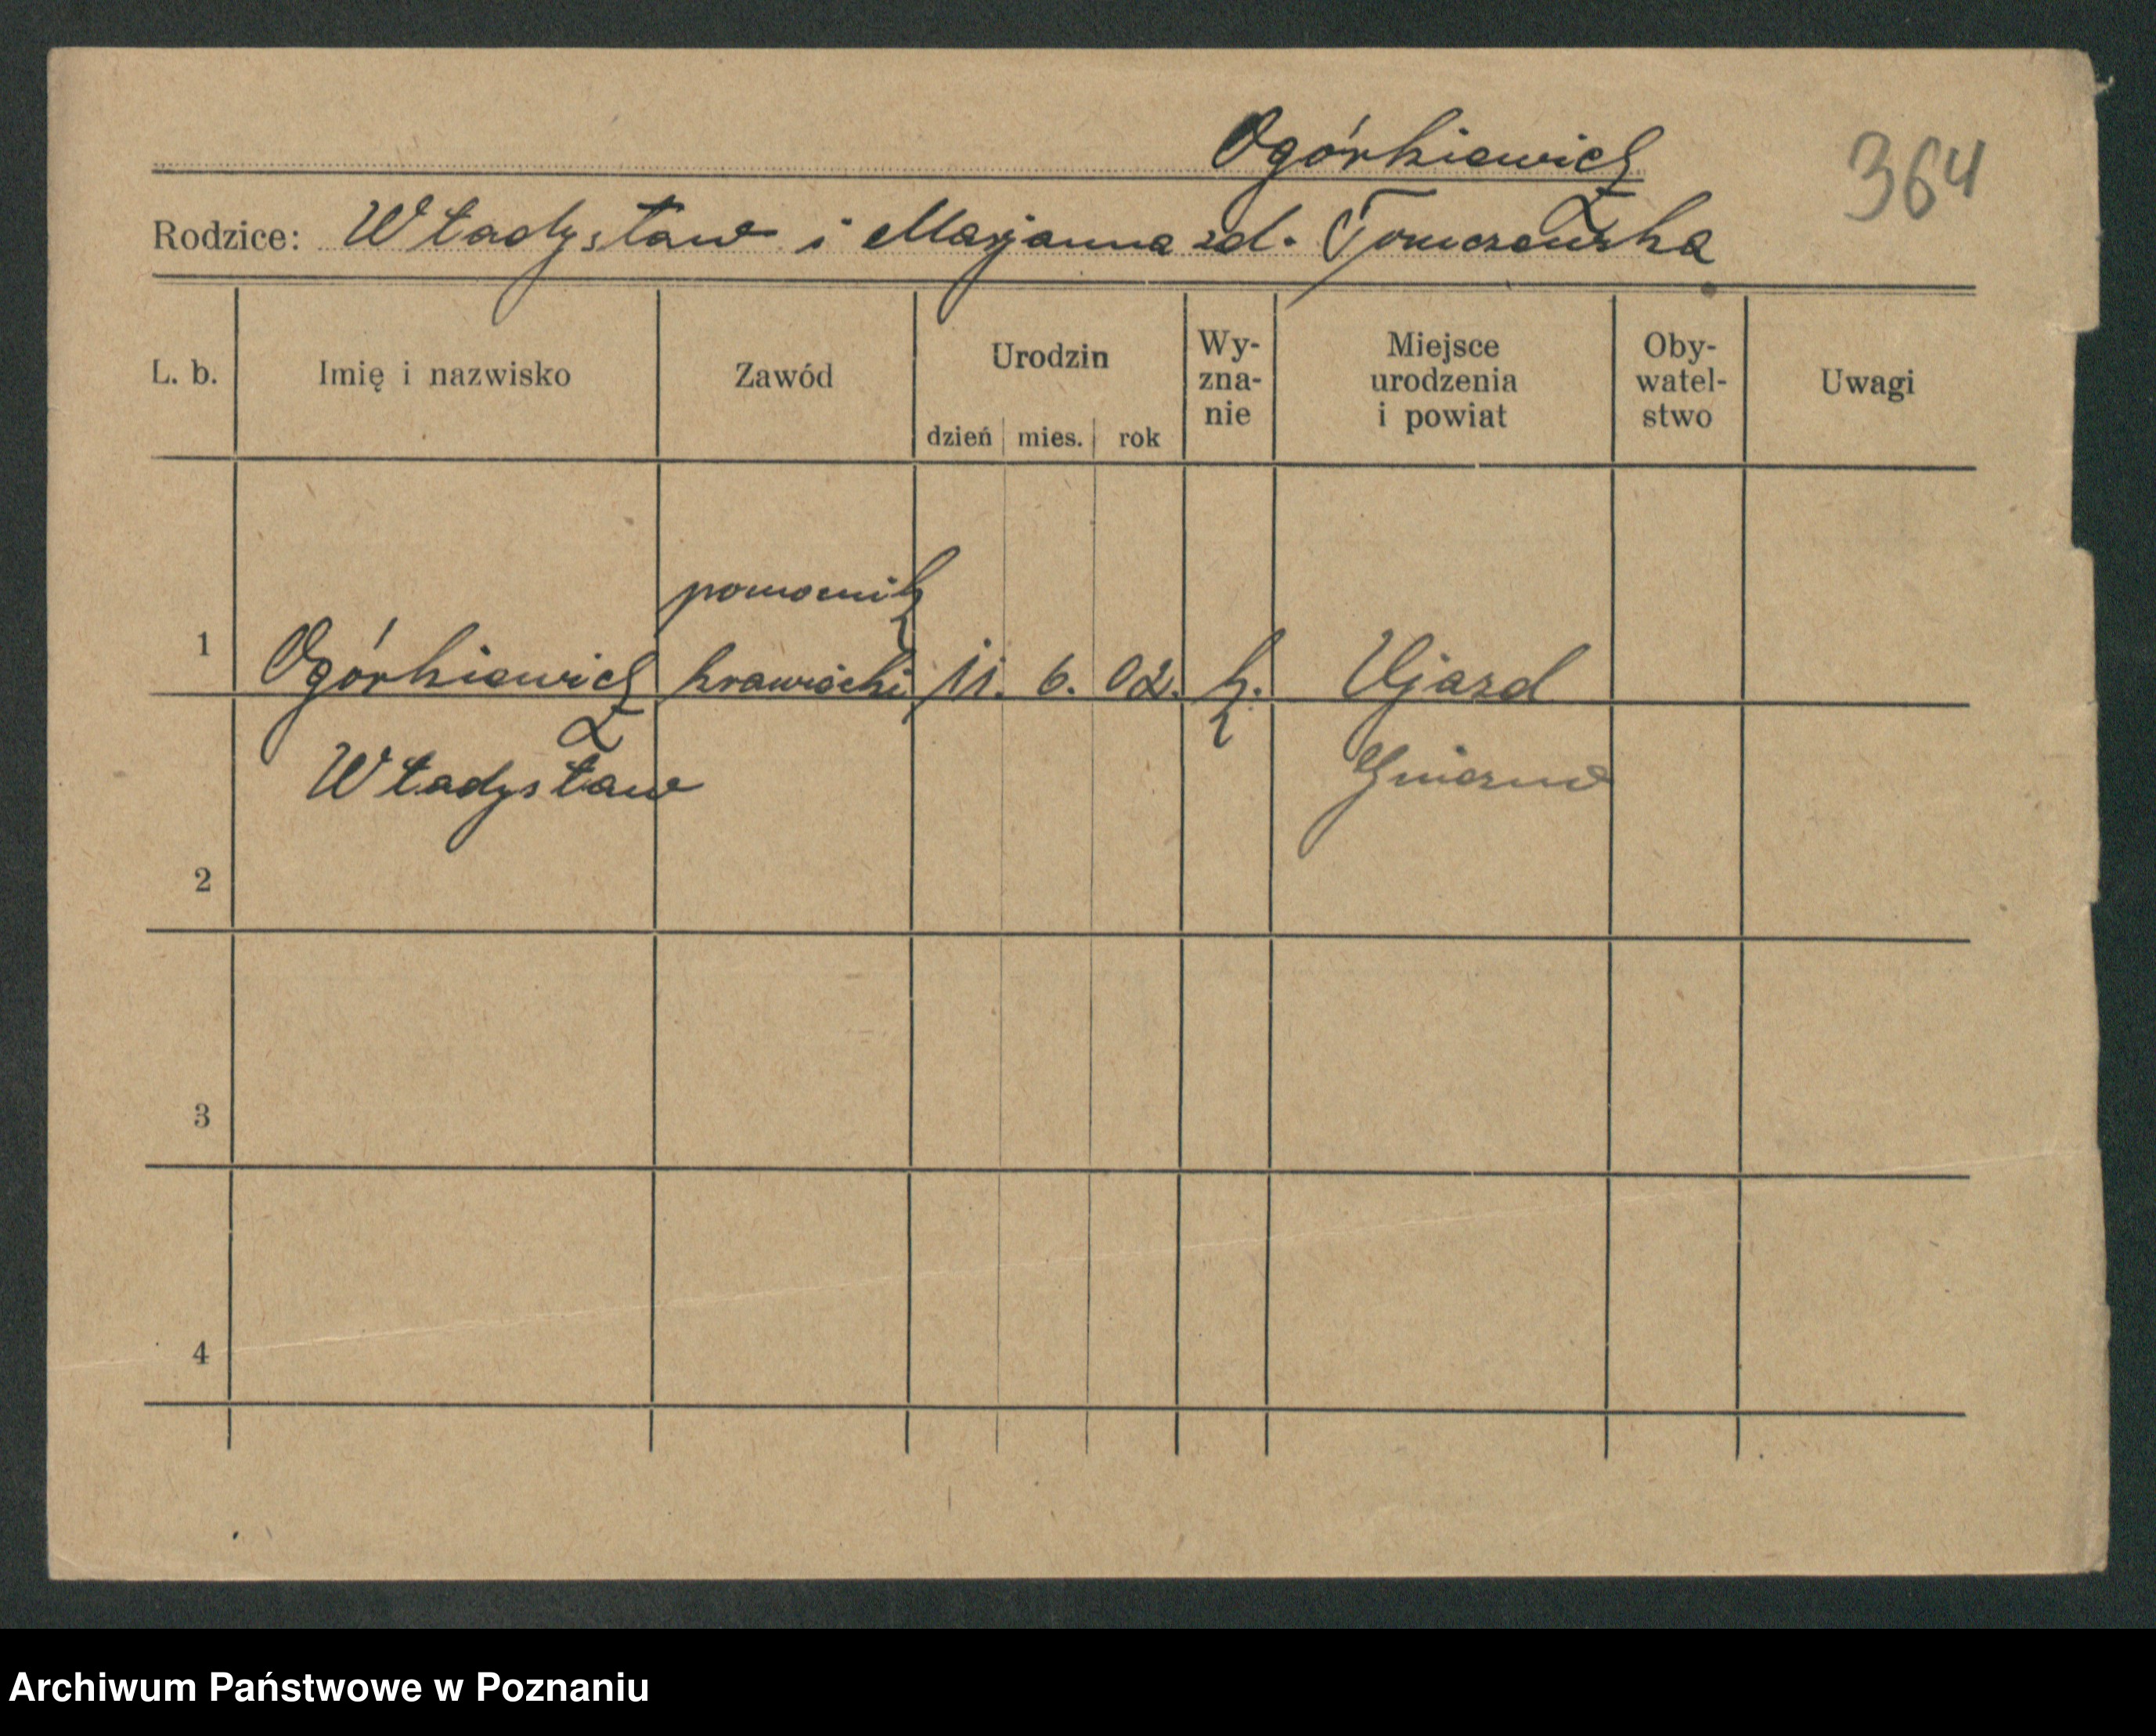 Ogórkiewicz
364
Rodzice: Władysław i Marjanna zd. Tomczewska
L. b. Imię i nazwisko Zawód Urodzin dzień mies. rok Wy-zna-nie Miejsce urodzenia i powiat Oby-watel-stwo Uwagi
pomocnik
1 Ogórkiewicz krawiecki 11. 6. 02. k. Ujazd
Władysław Gniezno
2
3
4
Archiwum Państwowe w Poznaniu